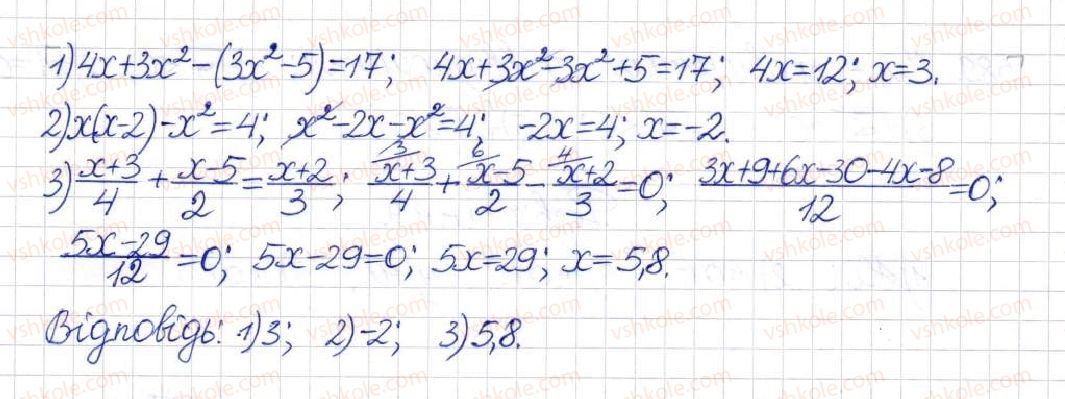 1) 4x+3x²-(3x²-5)=17; 4x+3x²-3x²+5=17; 4x=12; x=3.
2) x(x-2)-x²=4; x²-2x-x²=4; -2x=4; x=-2.
3) (x+3)/4 + (x-5)/2 = (x+2)/3; ³⁄(x+3)/4 + ⁶⁄(x-5)/2 - ⁴⁄(x+2)/3 = 0; (3x+9+6x-30-4x-8)/12 = 0;
(5x-29)/12 = 0; 5x-29=0; 5x=29; x=5,8.
Відповідь: 1) 3; 2) -2; 3) 5,8.